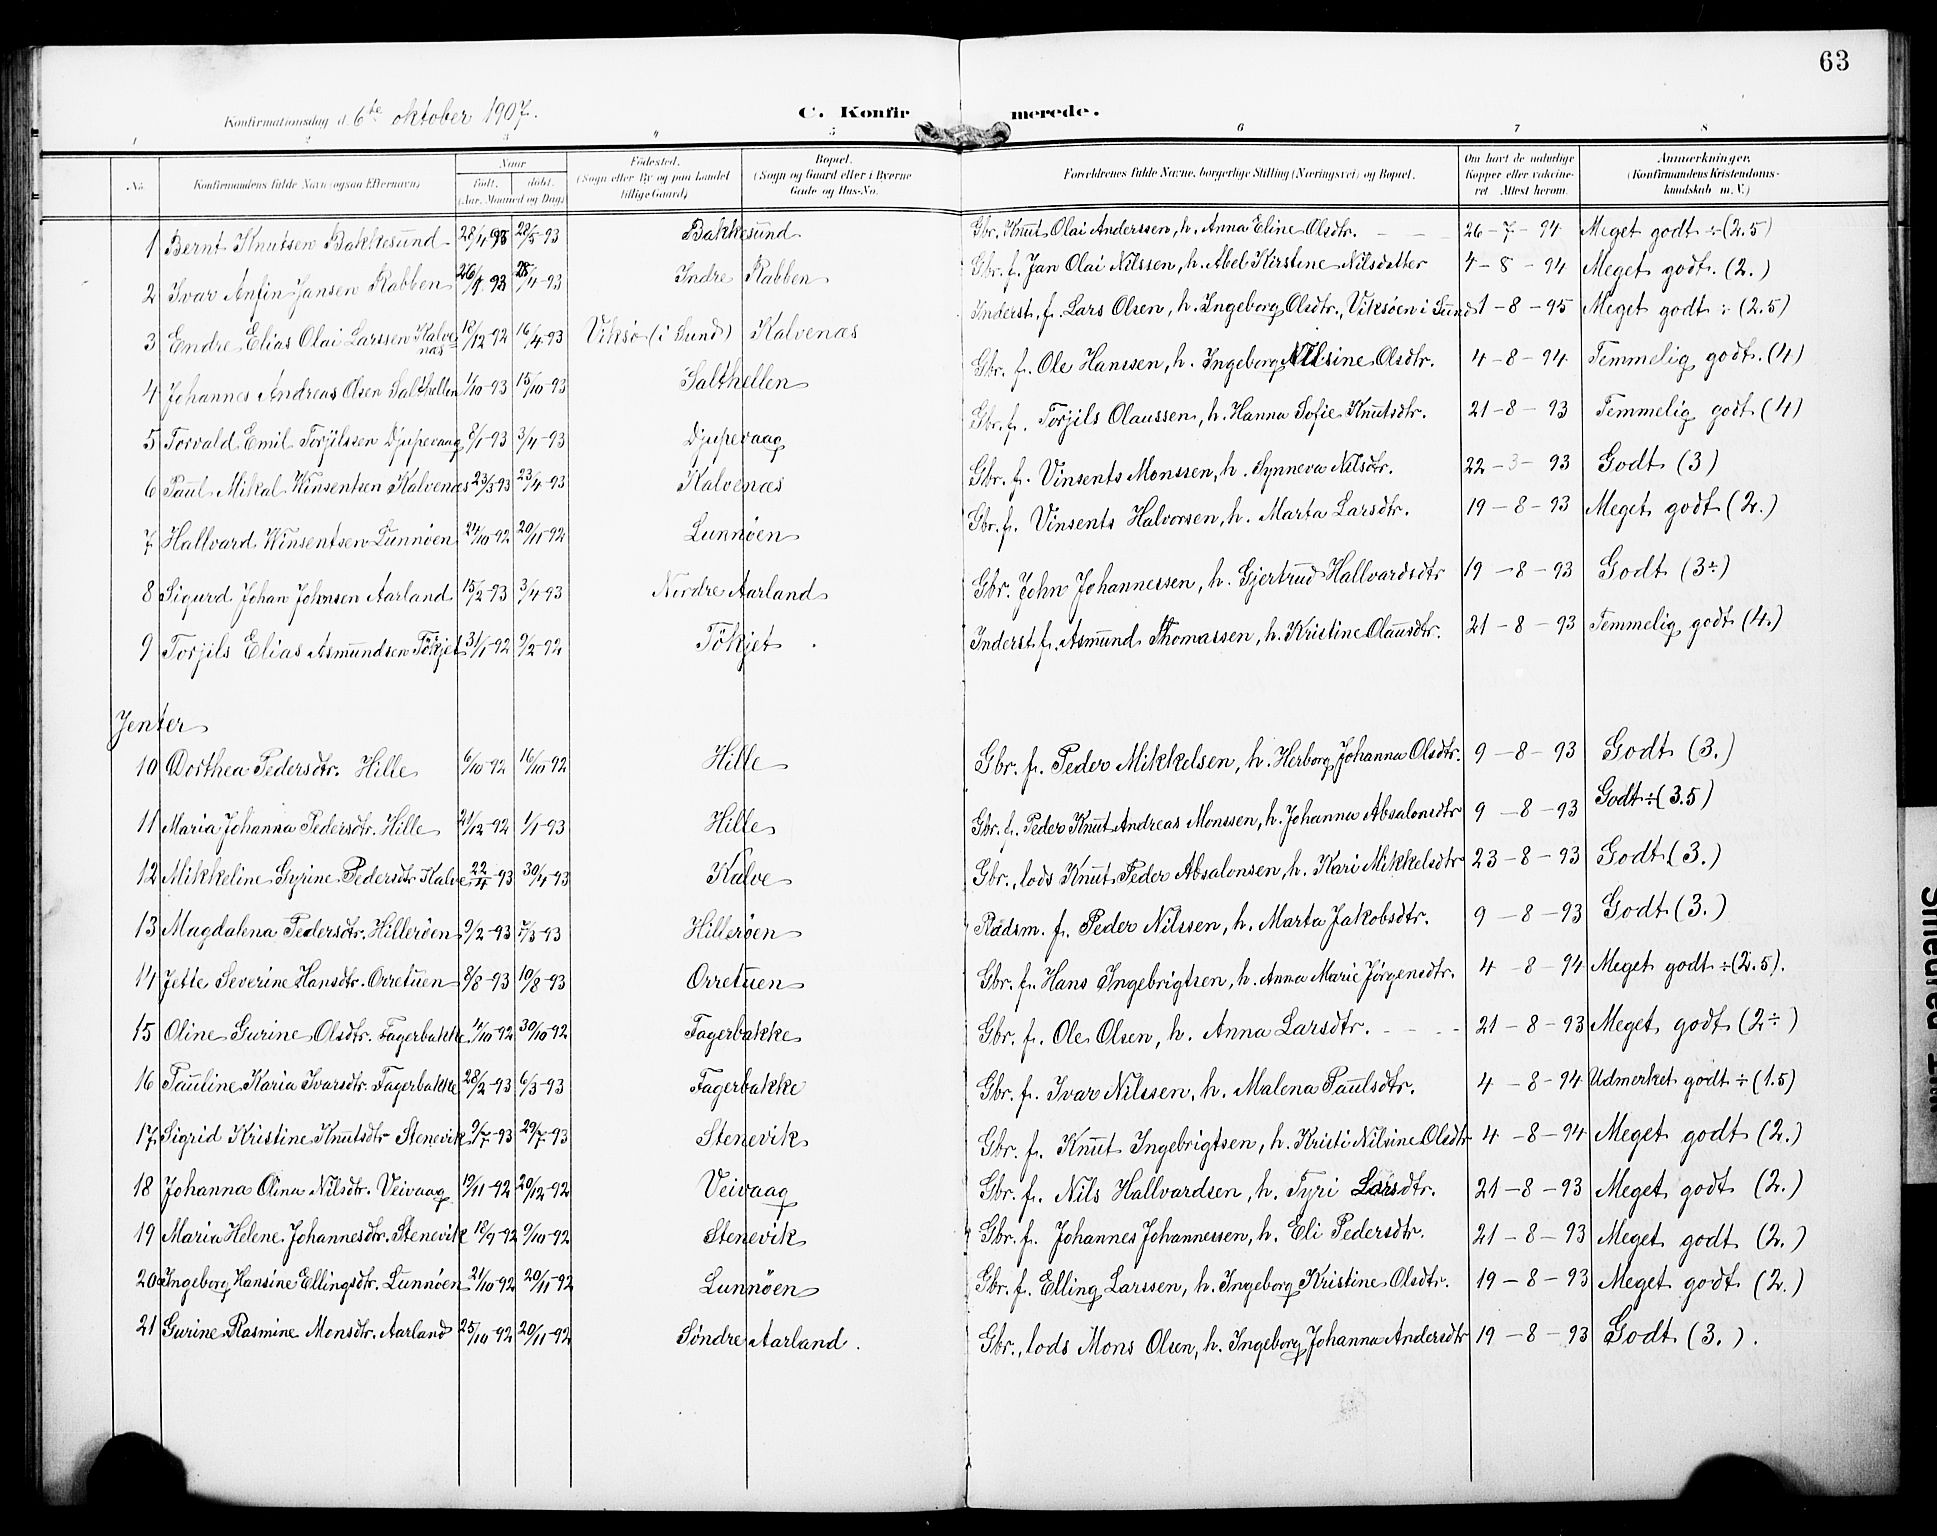 63
Konfirmationsdag d. 6te oktober 1907.
C. Konfirmerede.
1 2 3 4 5 6 7 8
No.
Konfirmandens fulde Navn (ogsaa Efternavn)
Naar
født. døbt.
(Aar, Maaned og Dag)
Fødested.
(Sogn eller By og paa Landet
tillige Gaard)
Bopæl.
(Sogn og Gaard eller i Byerne
Gade og Hus-No.
Forældrenes fulde Navne, borgerlige Stilling (Næringsvei) og Bopæl.
Om havt de naturlige
Kopper eller vakcine-
ret Attest herom.
Anmærkninger.
(Konfirmandens Kristendoms-
kundskab m. V.)
1 Bernt Knutsen Bakkesund 28/4 93 28/5-93 Bakkesund Gbr. Knut Olai Anderssen, h. Anna Eline Olsdtr. 26-7-94 Meget godt ÷ (2.5)
2 Ivar Anfin Jansen Rabben 26/1 93 28/4-93 Indre Rabben Gbr. f. Jan Olai Nilssen, h. Abel Kirstine Nilsdatter 4-8-94 Meget godt. (2.)
3 Endre Elias Olai Larssen Kalvenæs 18/12-92 16/4-93 Viksø (i Sund) Kalvenæs Inderst, f. Lars Olsen, h. Ingeborg Olsdtr., Viksøen i Sund 1-8-95 Meget godt ÷ (2.5)
4 Johannes Andreas Olsen Salthellen 1/10-93 15/10-93 Salthellen Gbr. f. Ole Hanssen, h. Ingeborg Nilsine Olsdtr. 4-8-94 Temmelig godt. (4)
5 Torvald Emil Torjilssen Djupevaag 8/1-93 3/4-93 Djupevaag Gbr. f. Torjils Olaussen, h. Hanna Sofie Knutsdtr. 21-8-93 Temmelig godt (4)
6 Paul Mikal Winsentsen Kalvenæs 23/3 93 23/4-93 Kalvenæs Gbr. f. Vinsents Monssen, h. Synneva Nilsdtr. 22-3-93 Godt (3)
7 Hallvard Winsentsen Lunnøen 24/10-92 20/11-92 Lunnøen Gbr. f. Vinsents Halvorsen, h. Marta Larsdtr. 19-8-93 Meget godt (2.)
8 Sigurd Johan Johnsen Aarland 15/2-93 3/4-93 Nordre Aarland Gbr. John Johannessen, h. Gjertrud Hallvardsdtr 19-8-93 Godt (3÷)
9 Torjils Elias Asmundsen Tökjet 31/1-92 9/2-92 Tökjet Inderst f. Asmund Thomassen, h. Kristine Olausdtr. 21-8-93 Temmelig godt (4.)
Jenter
10 Dorthea Pedersdtr. Hille 6/10-92 16/10-92 Hille Gbr. f. Peder Mikkelsen, h. Herborg Johanna Olsdtr. 9-8-93 Godt (3.)
11 Maria Johanna Pedersdtr. Hille 21/12-92 1/1-93 Hille Gbr. f. Peder Knut Andreas Monssen, h. Johanna Absalonsdtr 9-8-93 Godt ÷ (3.5)
12 Mikkeline Gyrine Pedersdtr Kalve 22/4-93 30/4-93 Kalve Gbr., lods Knut Peder Absalonsen, h. Kari Mikkelsdtr 23-8-93 Godt (3.)
13 Magdalena Pedersdtr. Hillerøen 9/2-93 5/3-93 Hillerøen Pladsm. f. Peder Nilssen, h. Marta Jakobsdtr. 9-8-93 Godt (3.)
14 Jette Severine Hansdtr. Orretuen 8/8-93 10/8-93 Orretuen Gbr. f. Hans Ingebrigtsen, h. Anna Marie Jörgensdtr. 4-8-94 Meget godt ÷ (2.5).
15 Oline Gurine Olsdtr. Fagerbakke 11/10-92 30/10-92 Fagerbakke Gbr. f. Ole Olsen, h. Anna Larsdtr. 21-8-93 Meget godt (2÷)
16 Pauline Karia Ivarsdtr. Fagerbakke 28/2-93 6/3-93 Fagerbakke Gbr. f. Ivar Nilssen, h. Malena Paulsdtr. 4-8-94 Udmerket godt ÷ (1.5)
17 Sigrid Kristine Knutsdtr Stenevik 9/7-93 29/7-93 Stenevik Gbr. f. Knut Ingebrigtsen, h. Kristi Nilsine Olsdtr 4-8-94 Meget godt (2.)
18 Johanna Olina Nilsdtr. Veivaag 19/11-92 20/12-92 Veivaag Gbr. f. Nils Hallvardsen, h. Tyri Larsdtr. 21-8-93 Meget godt (2.)
19 Maria Helene Johannesdtr. Stenevik 18/9-92 9/10-92 Stenevik Gbr. f. Johannes Johannessen, h. Eli Pedersdtr. 21-8-93 Meget godt (2.)
20 Ingeborg Hansine Ellingsdtr. Lunnöen 21/10-92 20/11-92 Lunnöen Gbr. f. Elling Larssen, h. Ingeborg Kristine Olsdtr. 19-8-93 Meget godt (2.)
21 Gurine Rasmine Monsdtr. Aarland 25/10-92 20/11-92 Søndre Aarland. Gbr., lods Mons Olsen, h. Ingeborg Johanna Andersdtr 19-8-93 Godt (3.).